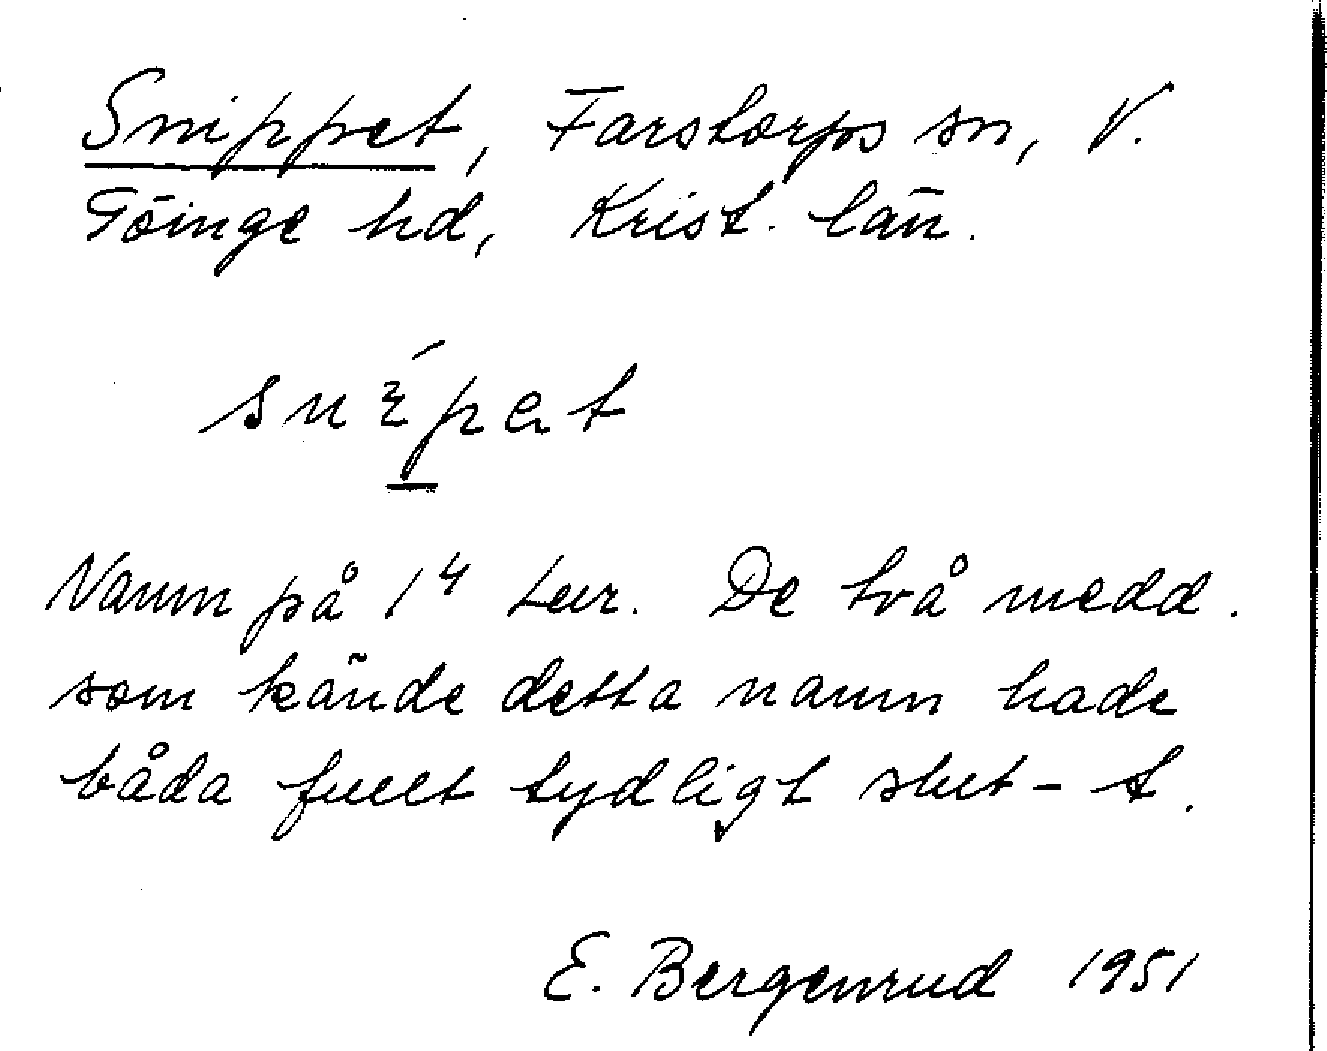 Snippet, Farstorps sn, V.
Göinge hd, Krist. län.
Namn på 1⁴ tur. De två medd.
som kände detta namn hade
båda fullt tydligt slut-t.
E. Bergenrud 1951